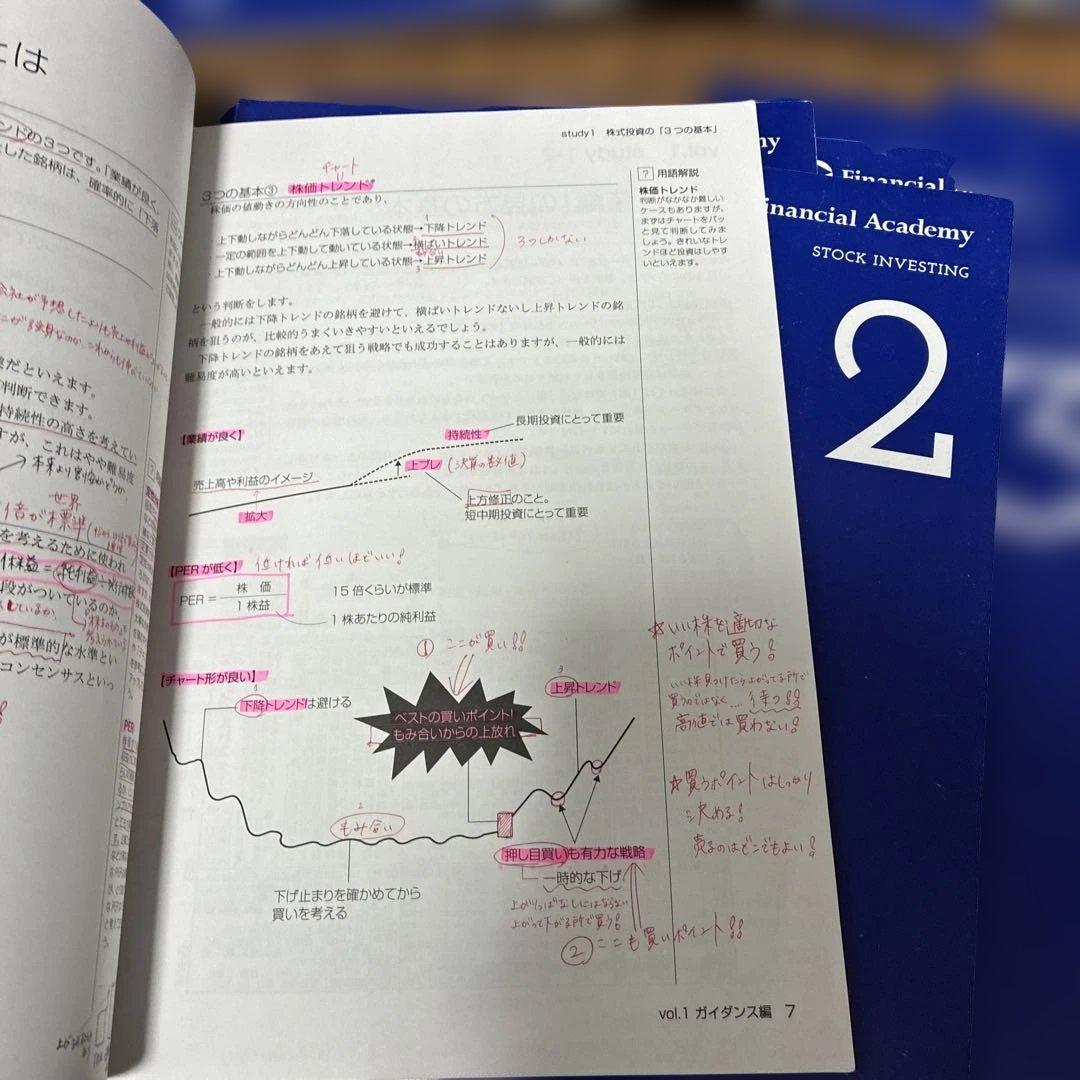 とは
ンドの3つです。「業績が良く、
した銘柄は、確率的に「下落
だといえます。
判断できます。
持続性の高さを考えてい
すが、これはやや難易度
→本来より割安かどうか
世界
倍が標準
を考えるために使われ
段がついているのか
が標準的な水準とい
コンセンサスといっ
study1 株式投資の「3つの基本」
チャート
3つの基本③ 株価トレンド
株価の値動きの方向性のことであり、
1
上下動しながらどんどん下落している状態→下降トレンド
2
一定の範囲を上下動して動いている状態→横ばいトレンド
上下動しながらどんどん上昇している状態→上昇トレンド
3
3つしかない
という判断をします。
一般的には下降トレンドの銘柄を避けて、横ばいトレンドないし上昇トレンドの銘
柄を狙うのが、比較的うまくいきやすいといえるでしょう。
下降トレンドの銘柄をあえて狙う戦略でも成功することはありますが、一般的には
難易度が高いといえます。
? 用語解説
株価トレンド
判断がなかなか難しい
ケースもありますが、
まずはチャートをパッ
と見て判断してみま
しょう。きれいなトレ
ンドほど投資はしやす
いといえます。
【業績が良く】
持続性
長期投資にとって重要
上ブレ(決算の数値)
売上高や利益のイメージ
拡大
上方修正のこと。
短中期投資にとって重要
【PERが低く】 低ければ低いほどいい!
PER= 株 価
1株益
15倍くらいが標準
1株あたりの純利益
① ここが買い!!
【チャート形が良い】
1
下降トレンドは避ける
ベストの買いポイント!
もみ合いからの上放れ
3
上昇トレンド
2
もみ合い
下げ止まりを確かめてから
買いを考える
押し目買いも有力な戦略
一時的な下げ
上がりっぱなしにはならない
上がって下がる所で買う!
② ここも買いポイント!!
☆いい株を適切な
ポイントで買う!
いい株見つけたら上がってる所で
買うのではなく…待つ!!
高値では買わない!
☆買うポイントはしっかり
決める!
売るのはどこでもよい!
vol.1 ガイダンス編 7
my
Financial
Financial Academy
STOCK INVESTING
2